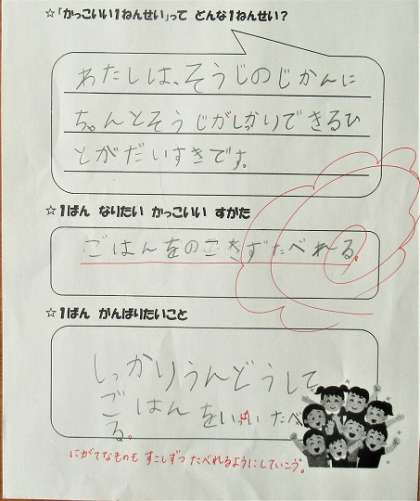 ☆「かっこいい1ねんせい」って どんな1ねんせい?
わたしは、そうじのじかんに
ちゃんとそうじがしっかりできるひ
とがだいすきです。
☆1ばん なりたい かっこいい すがた
ごはんをのこさずたべれる。
☆1ばん がんばりたいこと
しっかりうんどうして
ごはんをいっぱいたべ
る。
にがてなものも すこしずつ たべれるようにしていこう。